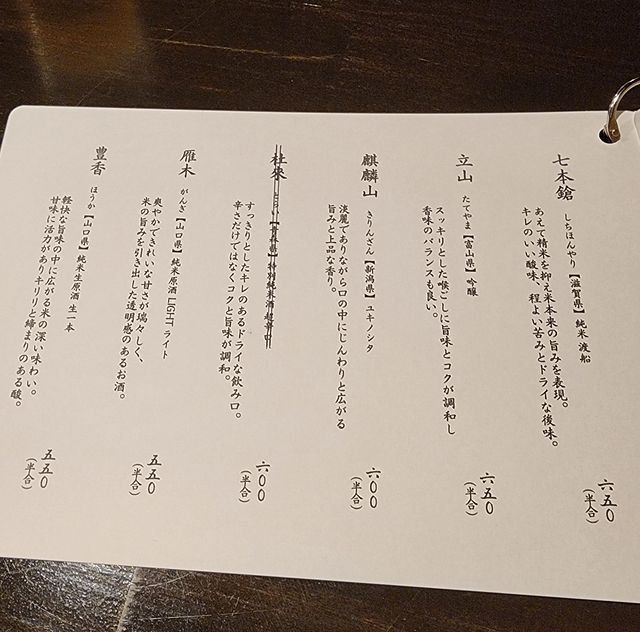 七本鎗 しちほんやり【滋賀県】純米 渡船
あえて精米を抑え米本来の旨みを表現。
キレのいい酸味、程よい苦みとドライな後味。
六五〇
(半合)
立山 たてやま【富山県】吟醸
スッキリとした喉ごしに旨味とコクが調和し
香味のバランスも良い。
六五〇
(半合)
麒麟山 きりんざん【新潟県】ユキノシタ
淡麗でありながら口の中にじんわりと広がる
旨みと上品な香り。
六〇〇
(半合)
杜來 【青森県】特別純米酒 超辛口
すっきりとしたキレのあるドライな飲み口。
辛さだけではなくコクと旨味が調和。
六〇〇
(半合)
雁木 がんぎ【山口県】純米原酒 LIGHT ライト
爽やかできれいな甘さが瑞々しく、
米の旨みを引き出した透明感のあるお酒。
五五〇
(半合)
豊香 ほうか【山口県】純米生原酒 生一本
軽快な旨味の中に広がる米の深い味わい。
甘味に活力がありキリリと締まりのある酸。
五五〇
(半合)